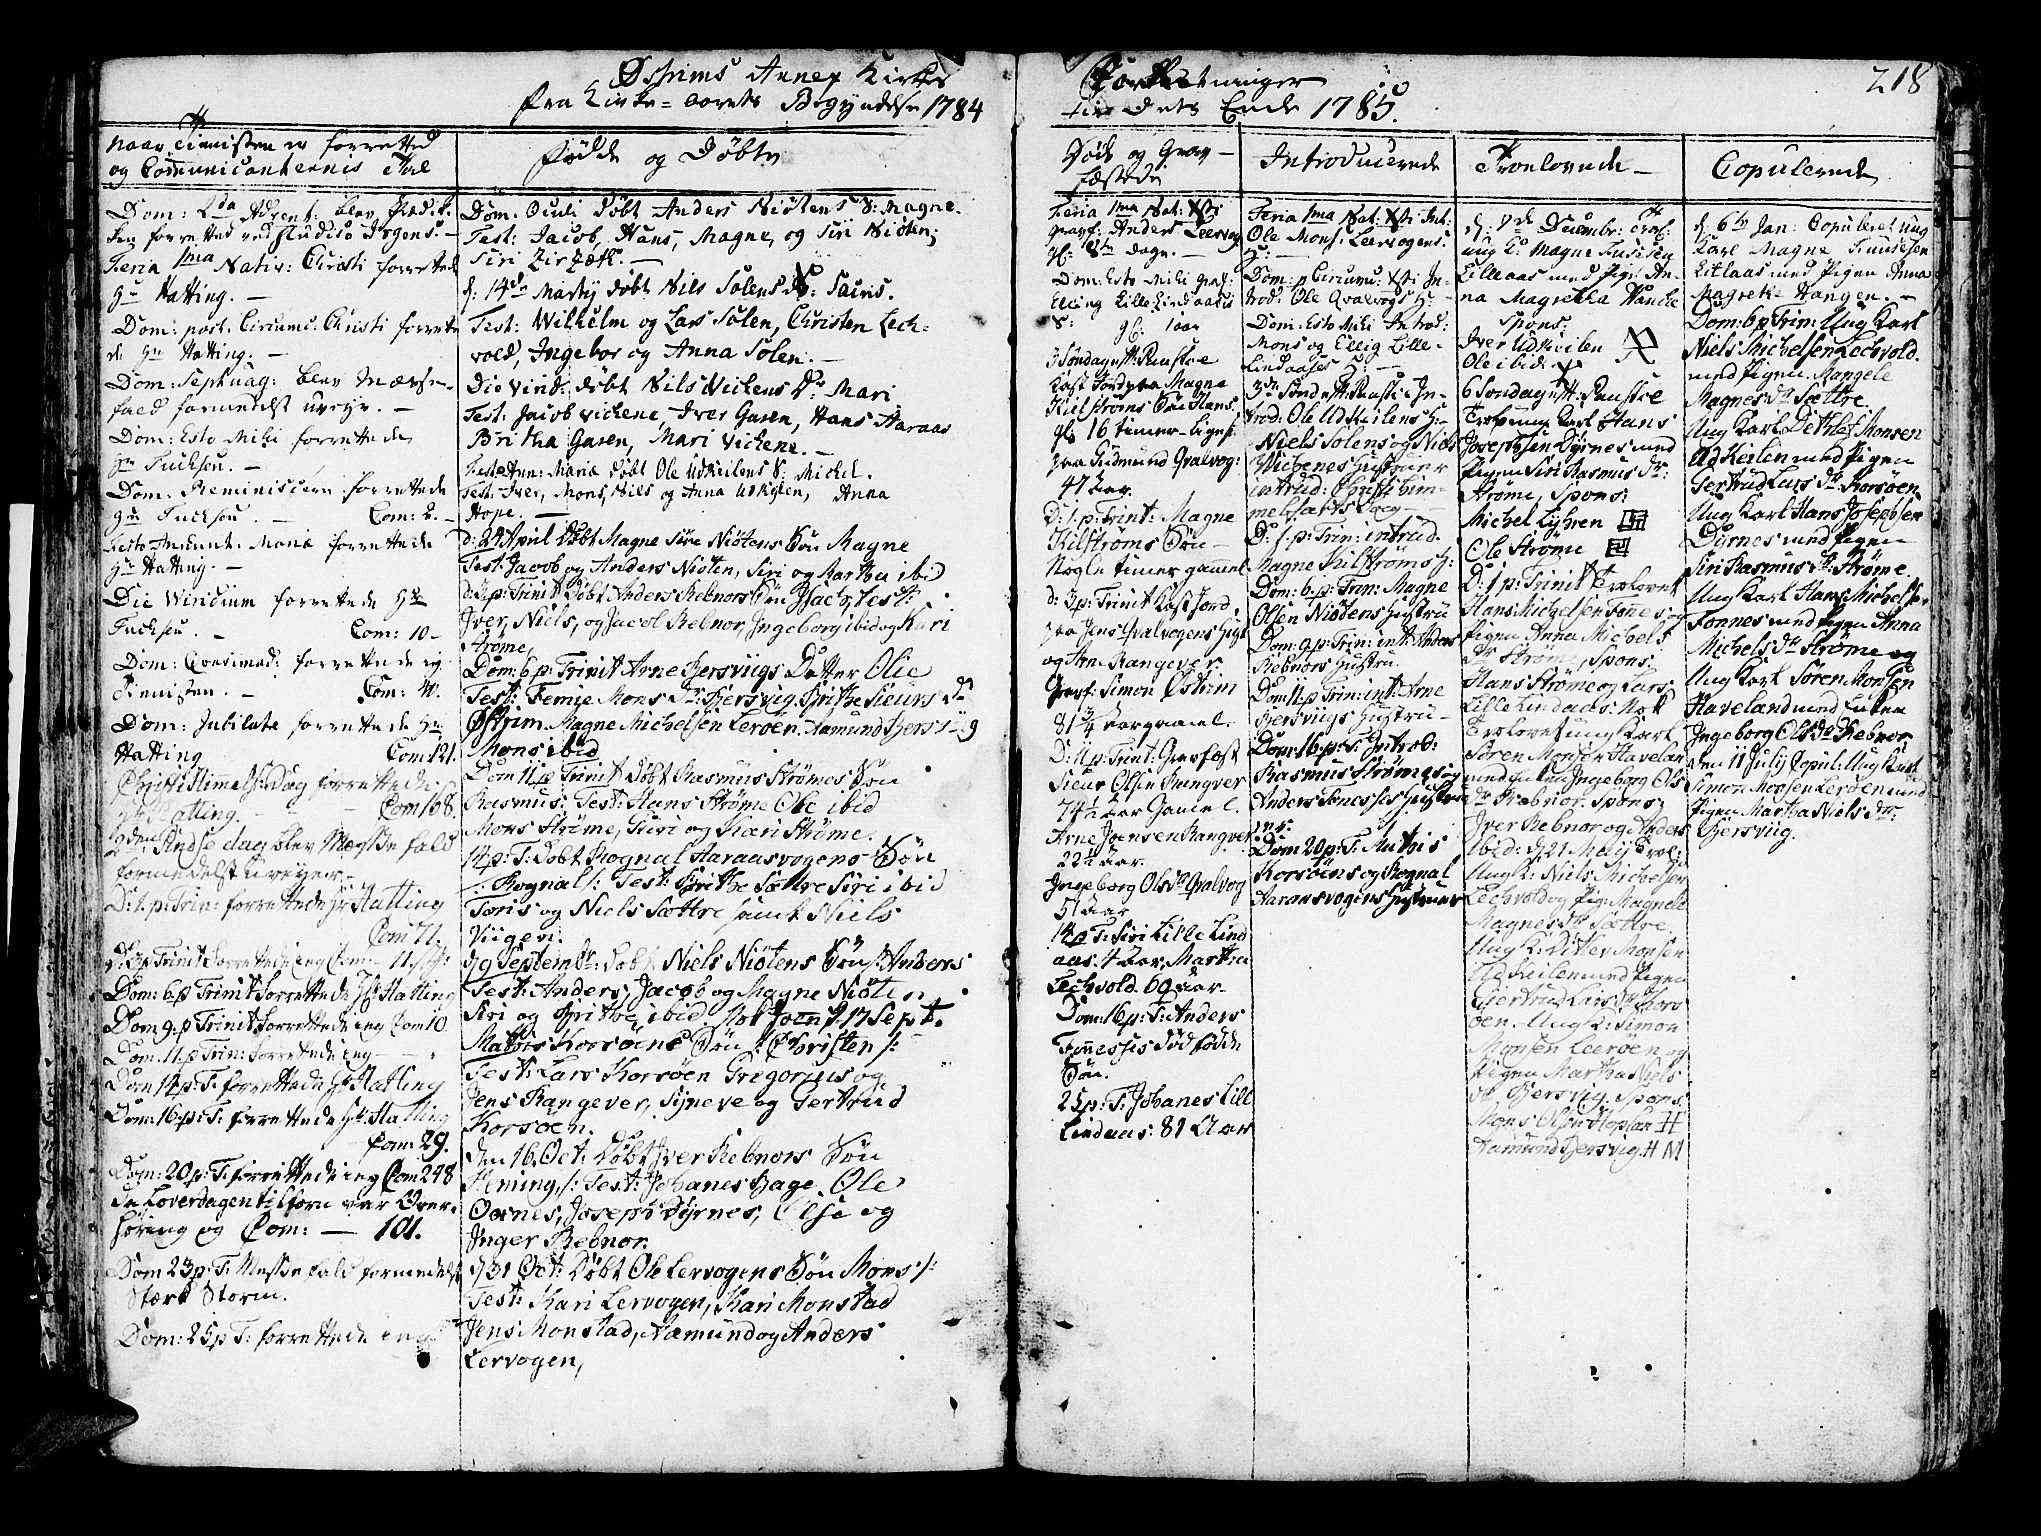 Østrims Annex Kirke
fra Kirke-Aarets Begyndelse 1784
Naar Tienisten er forretted
og Communicanternes Tal
Dom: 2da Advent: blev Prædik-
ken forretted ved Studioso Irgens. -
Feria 1ma Nativ: Christi forretted
Hr Hatting. -
Dom: post. Circumc: Christi forrette
d: Hr Hatting. -
Dom: Septuag: blev Messe-
fald formedelst uveyr. -
Dom: Esto Mihi forrettede
Hr Fuchsen. -
Dom: Reminiscere forrettede
Hr Fuchsen. - Com: 2. -
Festo Annunt: Mariæ forrettede
Hr Hatting. -
Die Viridium forrettede Hr
Fuchsen. - Com: 10 -
Dom: Qvasimod: forrettede ieg
Tienisten. - Com: 4. -
Dom: Jubilate forrettede Hr
Hatting Com: 121.
Christi Himmelf: Dag forrettede
Hr Hatting. - Com 168.
2den Pindse dag blev Messe fald
formedelst Uveyer. -
D: 1. p: Trin: forrettede Hr Hatting
Com 71.
D: 3 p Trinit forrettede ieg Com: - 11.
Dom: 6. p Trinit forrettede Hr Hatting
Dom 9. p Trinit forrettede ieg Com 10
Dom: 11. p Trin: forrettede ieg -
Dom 14 p. T. forrettede Hr Hatting
Dom: 16. p: T: forrettede Hr Hatting
Com: 29.
Dom: 20 p: T: forrettede ieg Com 248
Da Løverdagen tilforn var Over-
høring og Com: - 101.
Dom 23 p: T: Messe fald formedelst
Stærk Storm.
Dom: 25 p T: forrettede ieg
Fødde og Døbte
Dom: Oculi døbt Anders Niøtens S: Magne.
Test: Jacob, Hans, Magne, og Siri Niøten;
Siri
d: 14de Martij døbt Nils Solens
Test: Wilhelm og Lars Solen, Christen Lech-
vold, Ingebor og Anna Solen. -
Die Virid: døbt Nils Vickens Dr Mari
Test: Jacob Vickene Iver Gasen, Hans Aaraas
Britha Gasen, Mari Vickene. -
Festo Ann: Mariæ døbt Ole Udkeilens S: Michel.
Test: Iver, Mons, Nils og Anna Udkeilen, Anna
Hope. -
d: 24 April Døbt Magne Niøtens Søn Magne
Test: Jacob og Anders Niøten, Siri og Martha ibid
d: 3 p: Trinit Døbt Anders Rebnors Søn Test:
Iver, Niels, og Jacob Rebnor, Ingeborg ibid og Kari
Strøme,
Dom: 6. p: Trinit Arne Giersviigs Datter Olie
Test: Femie Mons Dr Giersvig, Brithe Sieurs Dr
Østrim Magne Michelsen Lerøen, Aamund Giersviig
Mons ibid
Dom 11. p Trinit Døbt Rasmus Strømes Søn
Rasmus: Test: Hans Strøme Ole ibid
Mons Strøme, Guri og Kari Strøme.
14 p: T: Døbt Rognal Aaraasvogens Søn
Rognal /: Test: Brithe Sættre Siri ibid
Toris og Niels Sættre samt Niels
Viigen.
d 9 Septembr: døbt Niels Niøtens Søn /: Anders
Test: Anders, Jacob og Magne Niøten
Siri og Brithe ibid. 17 Sept.
Mathis Korsøens Søn /: Christen /:
Test: Lars Korsøen Gregorius og
Jens Rangever, Synneve og Gertrud
Korsøen.
den 16. Oct: Døbt Iver Rebnors Søn
Heming, /: Test: Johanes Bage, Ole
Oxnes, Joseph Dyrnes, Else og
Inger Rebnor.
d 31 Oct: Døbt Ole Lervogens Søn Mons /:
Test: Kari Lervogen, Kari Monstad
Jens Monstad, Aamund og Anders
Lervogen,
Forretninger
til dets Ende 1785.
218
Døde og Grav-
fæstede
Feria 1ma Nat: Xsti
gravf: Anders Leervog
gl: 8te dage. -
Dom: Esto Mihi Graf:
Elling Lille Lindaasis
S: gl: 1 aar
3 Søndag eft: Paaske
Kast Jord paa Magne
Kielstrøms Søn Hans
gl: 16 timer - ligesaa
paa Gudmund Qvalvog:
47 Aar.
D: 1. p: Trint: Magne
Kilstrøms Søn -
Nogle timer gammel
d: 3 p: Trinit Kast Jord
paa Jens Qvalvogens
og Arne Rangever.
Graf: Simon Østrim
81 3/4 Aar gamel.
D: 11. p: Trint: Gravfæst
Sieur Olsen Rangver
74 1/2 Aar Gamel.
Arne Joensen Rangver
22 1/2 Aar.
Ingeborg Olsdr Qvalvog
51 Aar
14 p T: Siri Lille Lind
aas. 4 Aar, Martha
Lechvold. 69 Aar.
Dom: 16 p: T: Anders
Fonneses dødfødde
Søn.
25 p: T: Johanes Lill
Lindaas: 81 Aar
Introducerede
Feria 1ma Nat: Xsti Int:
Ole Mons: Leervogens
H: -
Dom: p Circumc: Xsti In-
trod: Ole Qvalvogs H: -
Dom: Esto Mihi Introd:
Mons og Ellig Lille-
Lindaases H: -
3de Sønd: eft: Paaske In-
trod: Ole Udkeilens H: -
Niels Solens og Niels
Wichenes Hustruer
introd: Christi Him-
melfarts Dag -
D: 1. p: Trin: introd.
Magne Kilstrøms H:
Dom: 6. p: Trin: Magne
Olsen Niøtens Hustru
Dom: 9. p: Trin: int: Anders
Rebnors Hustru.
Dom 11. p Trin: int: Arne
Gjersviigs Hustru -
Dom: 16 p: T: Introd:
Rasmus Strømes og
Anders Foneses Hustru
er.
Dom: 20 p: T: Mathis
Korsøens og Rognal
Aaraasvogens Hustruer
Troelovede -
d: 7de Decembr: Trol:
ung K: Magne
Lilleaas med Pige An-
na Magretha Hancke
Spons:
Iver Udkeilen
Ole ibid:
6 Søndag eft: Paaske
Trol: ung Karl Hans
Josephsen Dyrnes med
Pigen Siri Rasmus Dr:
Strøme, Spons:
Michel Lyhren
Ole Strøme
D: 1 p: Trinit Trolovet
Hans Michelsen Fønnes og
Pigen Anna Michels
Dr Strøme, Spons:
Hans Strøme og Lars
Lille Lindaas: Nok
Trolovet ung Karl
Søren Monsen Havelan
med Enken Ingeborg Ols
Dr Rebnor. Spons:
Iver Rebnor og Anders
ibid: d 21 Maij Trol:
Ung K: Niels Michelsen
Lechvold og Pig: Magnele
Magnes Dr Sættre.
Ung K: Ditlev Monsen
Ud Keilen med Pigen
Giertrud Lars Dr Kors
øen. Ung K: Simon
Monsen Leerøen og
Pigen Martha Niels
Dr Giersvig. Spons:
Mons Olsen Hoplan H
Aamund Giersvig. H M
Copulerede
d: 6te Jan: Copuleret ung
Karl Magne
Litlaas med Pigen Anna
Magrete Hangen. -
Dom: 6 p Trin: Ung Karl
Niels Michelsen Lechvold.
med Pigen Mangele
Magnes Dr Sættre.
Ung Karl Dethlef Monsen
Ud Keilen med Pigen
Gertrud Lars Dr Korsøen.
Ung Karl Hans Josephsen
Dyrnes med Pigen
Siri Rasmus Dr: Strøme.
Ung Karl Hans Michelsen
Fonnes med Pigen Anna
Michels Dr Strøme og
Ung Karl Søren Monsen
Haveland med Enken
Ingeborg Ols Dr Rebnor
den 11 July Copul: Ung Karl
Simon Monsen Lerøen med
Pigen Martha Niels Dr:
Gjersviig.